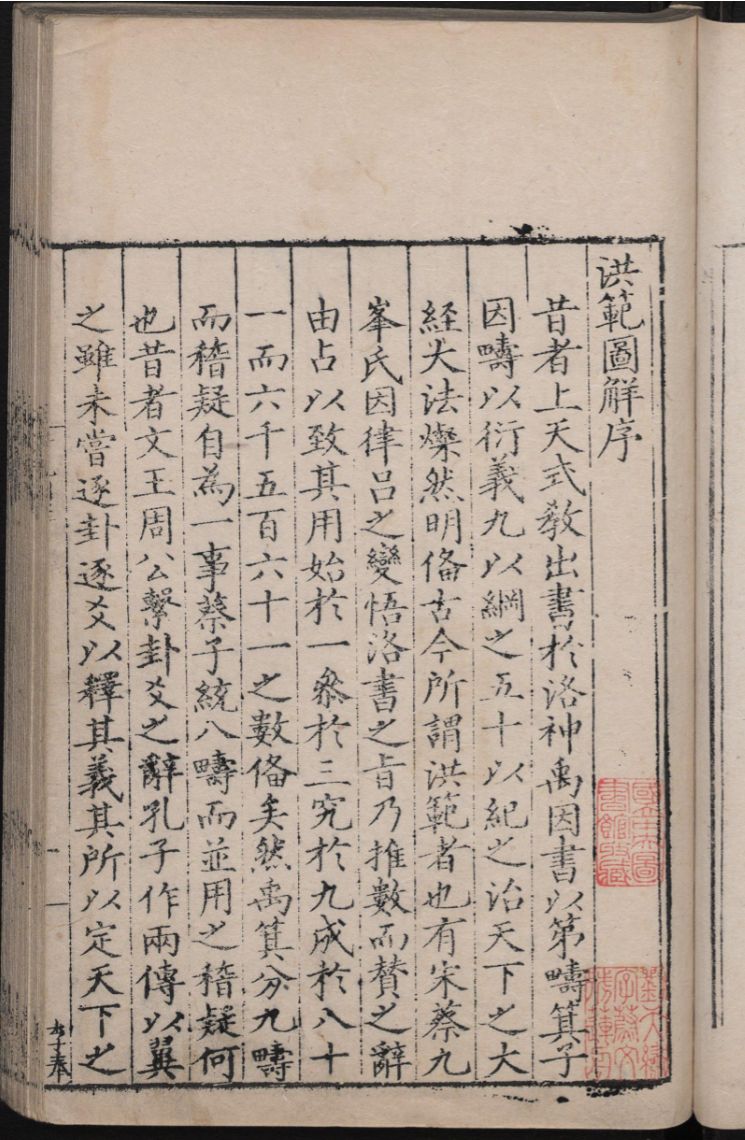 洪範圖解序
昔者上天式教出書於洛神禹因書以第疇箕子
因疇以衍義九以綱之五十以紀之治天下之大
經大法燦然明俻古今所謂洪範者也有宋蔡九
峯氏因律呂之變悟洛書之旨乃推數而賛之辭
由占以致其用始於一叅於三究於九成於八十
一而六千五百六十一之數俻矣然禹箕分九疇
而稽疑自為一事蔡子統八疇而並用之稽疑何
也昔者文王周公繫卦爻之辭孔子作兩傳以翼
之雖未嘗逐卦逐爻以釋其義其所以定天下之
國立中央圖
書館收藏